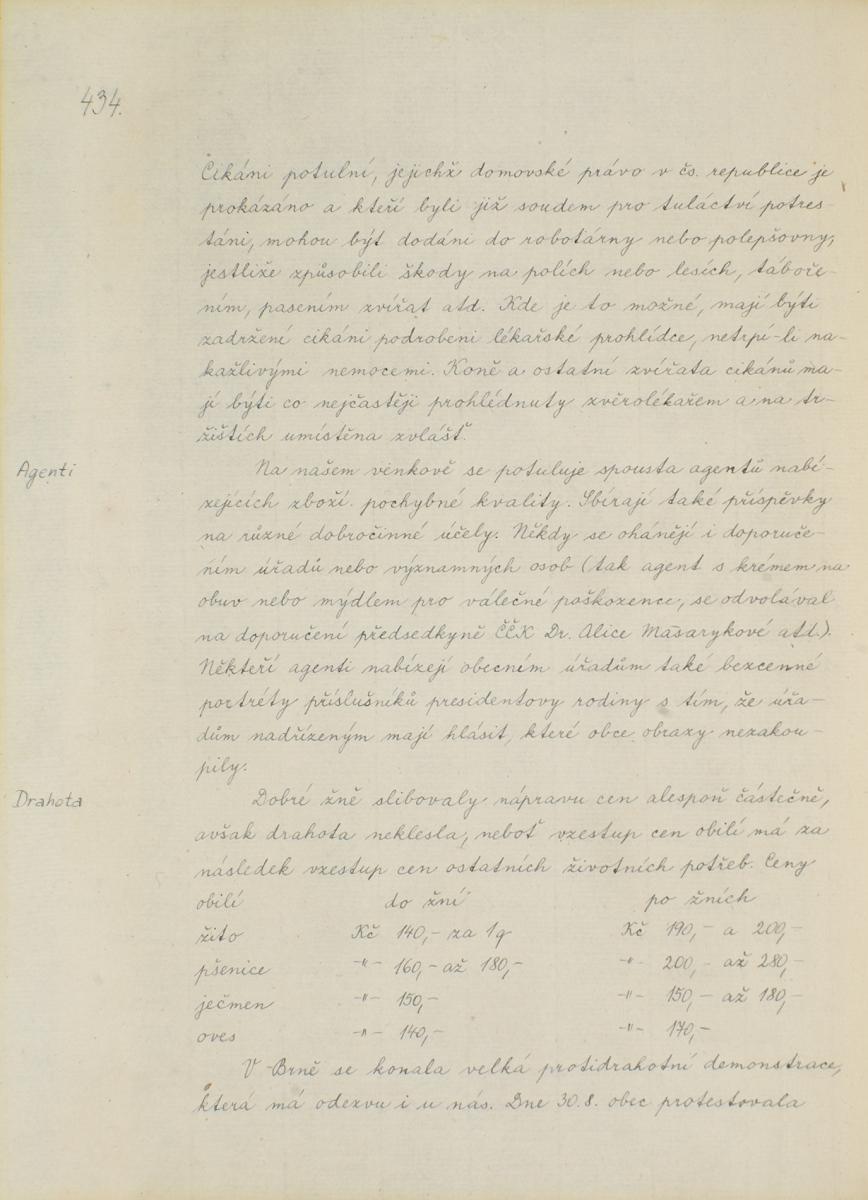 434.
Cikáni potulní, jejichž domovské právo v čs. republice je
prokázáno a kteří byli již soudem pro tuláctví potres-
táni, mohou být dodáni do robotárny nebo polepšovny,
jestliže způsobili škody na polích nebo lesích, táboře-
ním, pasením zvířat atd. Kde je to možné, mají býti
zadržení cikáni podrobeni lékařské prohlídce, netrpí-li na-
kažlivými nemocemi. Koně a ostatní zvířata cikánů ma-
jí býti co nejčastěji prohlédnuty zvěrolékařem a na tr-
žištích umístěna zvlášť.
Agenti
Na našem venkově se potuluje spousta agentů nabí-
zejících zboží pochybné kvality. Sbírají také příspěvky
na různé dobročinné účely. Někdy se ohánějí i doporuče-
ním úřadů nebo významných osob (tak agent s krémem na
obuv nebo mýdlem pro válečné poškozence, se odvolával
na doporučení předsedkyně ČČK Dr. Alice Masarykové atd.).
Někteří agenti nabízejí obecním úřadům také bezcenné
portréty příslušníků presidentovy rodiny s tím, že úřa-
dům nadřízeným mají hlásit, které obce obrazy nezakou-
pily.
Drahota
Dobré žně slibovaly nápravu cen alespoň částečně,
avšak drahota neklesla, neboť vzestup cen obilí má za
následek vzestup cen ostatních životních potřeb. Ceny
obilí do žní po žních
žito Kč 140,- za 1q Kč 190,- a 200,-
pšenice -"- 160,- až 180,- -"- 200,- až 280,-
ječmen -"- 150,- -"- 150,- až 180,-
oves -"- 140,- -"- 170,-
V Brně se konala velká protidrahotní demonstrace,
která má odezvu i u nás. Dne 30.8. obec protestovala